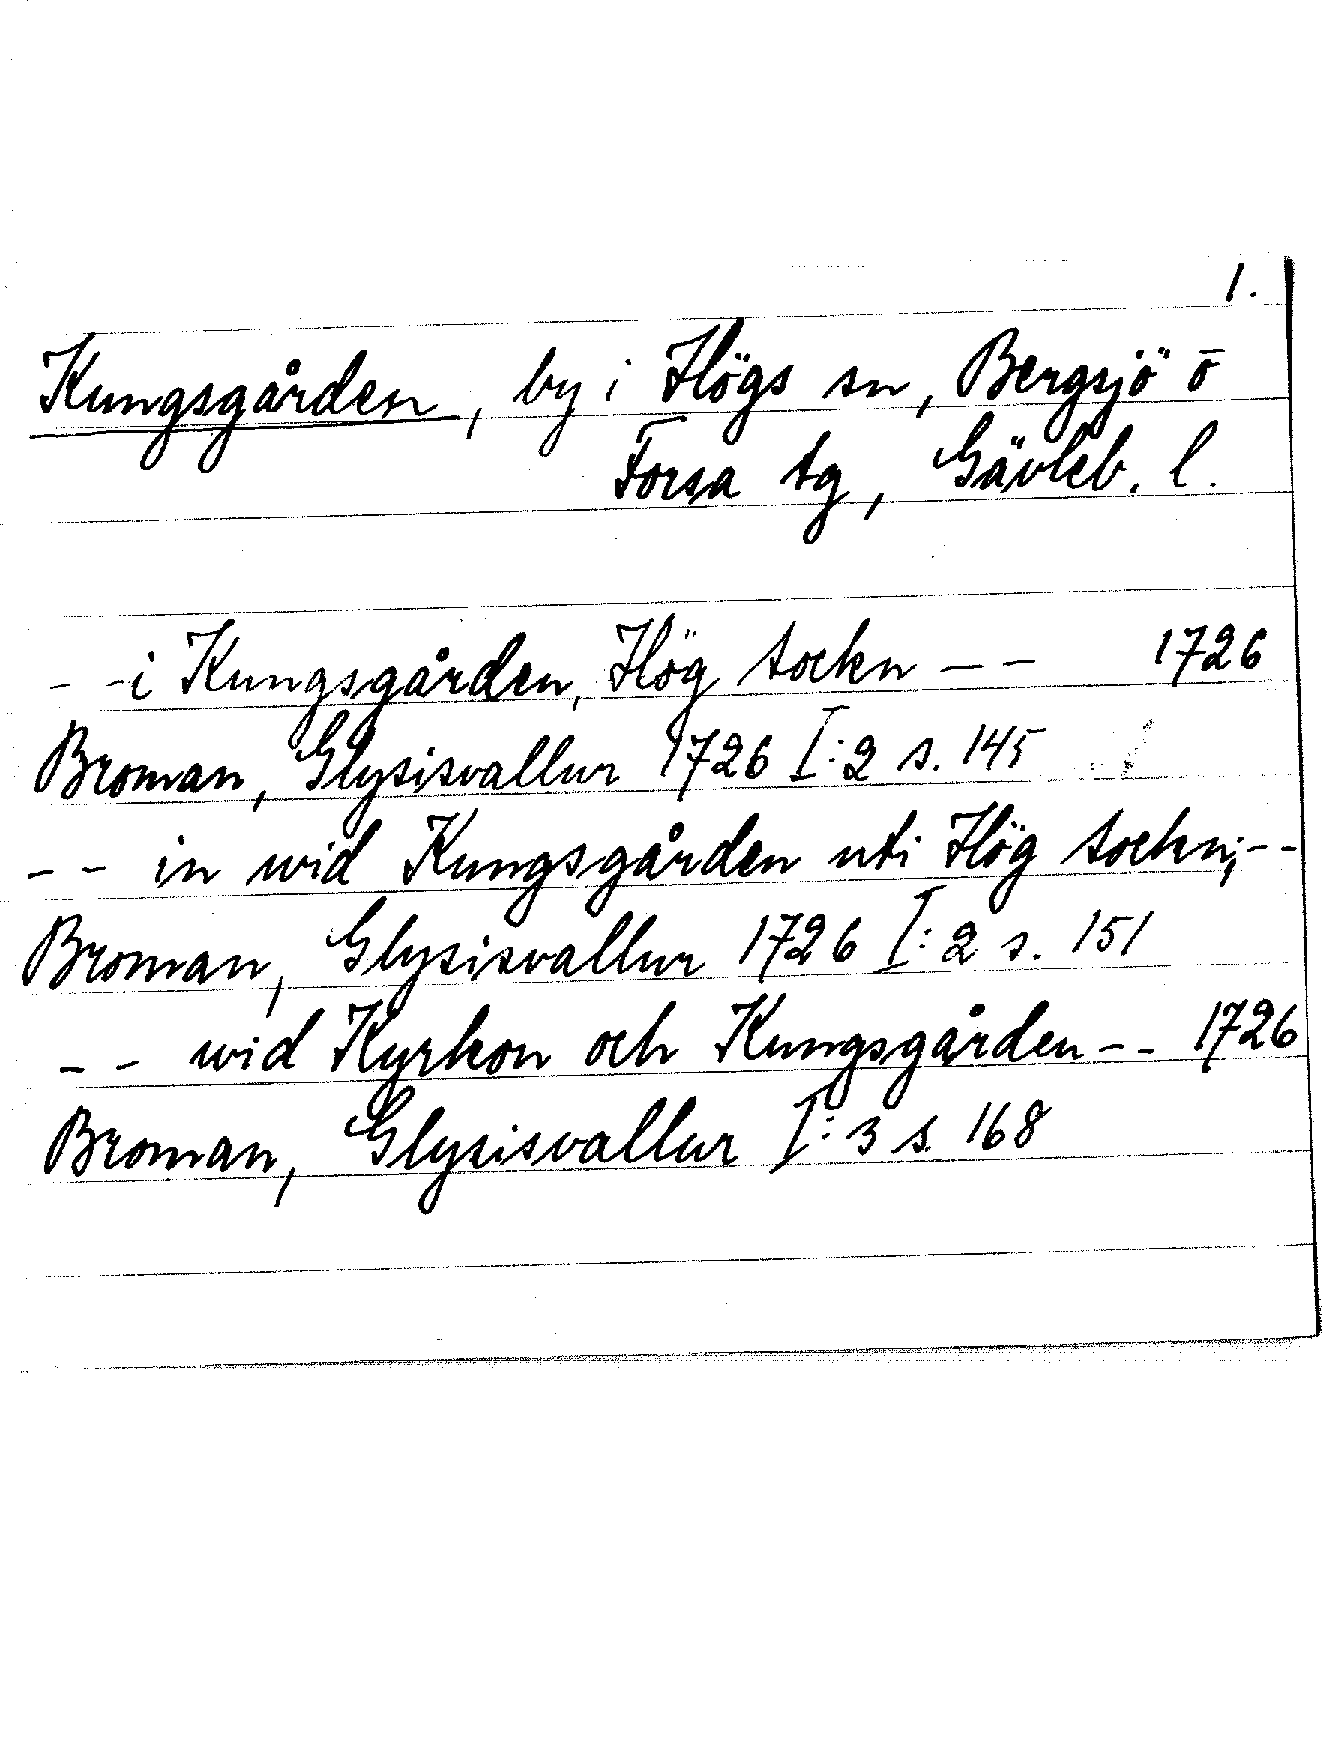 1.
Kungsgården, by i Högs sn, Bergsjö o̅
Forsa tg, Gävleb. l.
- - i Kungsgården, Hög sockn - - 1726
Broman, Glysisvallur 1726 I:2 s. 145
- - in wid Kungsgården uti Hög sockn; - -
Broman, Glysisvallur 1726 I:2 s. 151
- - wid Kyrkon och Kungsgården - - 1726
Broman, Glysisvallur I:3 s. 168